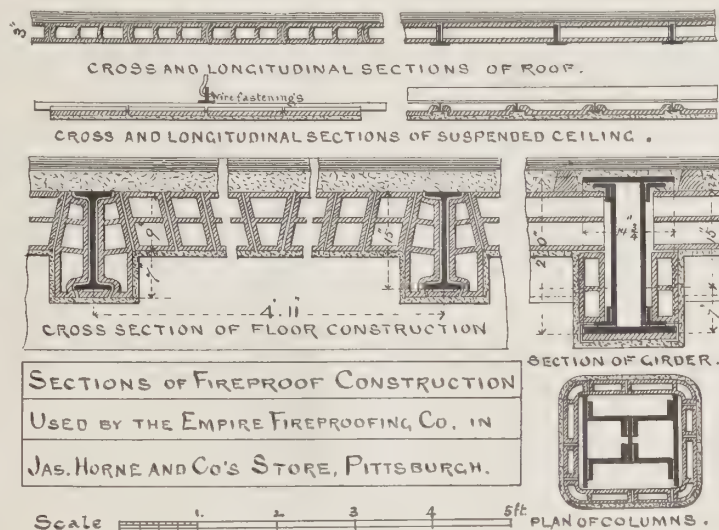 3"
CROSS AND LONGITUDINAL SECTIONS OF ROOF.
Wire fastenings
CROSS AND LONGITUDINAL SECTIONS OF SUSPENDED CEILING.
9
7"
15"
4'.11"
CROSS SECTION OF FLOOR CONSTRUCTION
2'0"
15"
7"
SECTION OF GIRDER.
SECTIONS OF FIREPROOF CONSTRUCTION
USED BY THE EMPIRE FIREPROOFING CO. IN
JAS. HORNE AND CO'S STORE, PITTSBURGH.
Scale 1. 2 3 4 5ft.
PLAN OF COLUMNS.